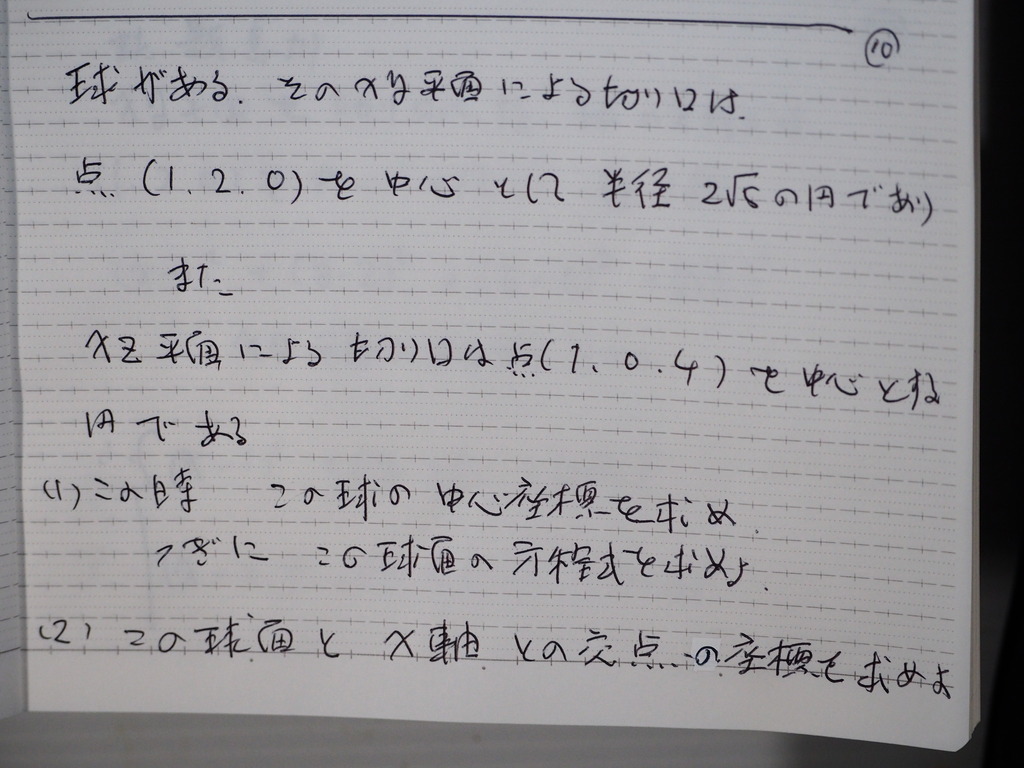 ⑩
球がある. そのxy平面による切り口は.
点 (1. 2. 0) を 中心 として 半径 2√5の円であり
また
xz平面による切り口は点(1. 0. 4) を中心とする
円である
(1) この時 この球の中心座標を求め.
つぎに この球面の方程式を求めよ.
(2) この球面と x軸との交点の座標を求めよ